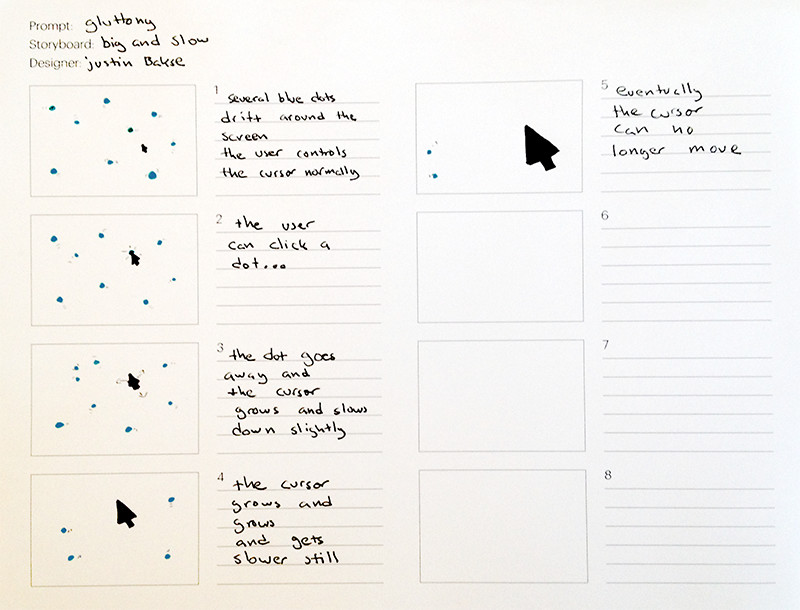 Prompt: gluttony
Storyboard: big and slow
Designer: justin Bakse
1
several blue dots
drift around the
screen
the user controls
the cursor normally
2
the user
can click a
dot...
3
the dot goes
away and
the cursor
grows and slows
down slightly
4
the cursor
grows and
grows
and gets
slower still
5
eventually
the cursor
can no
longer move
6
7
8